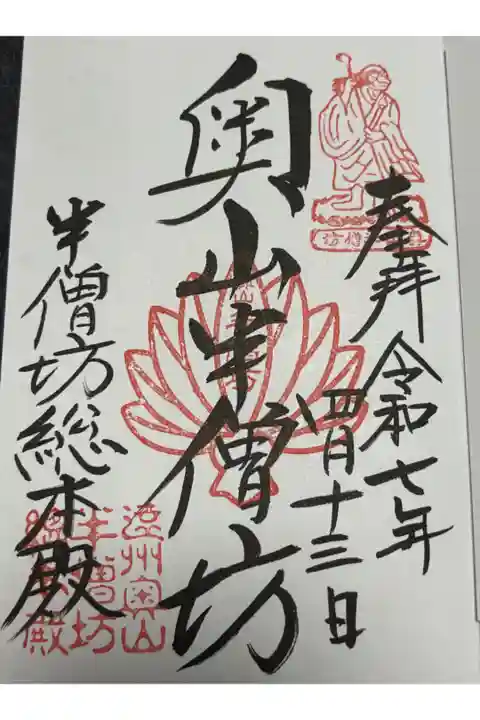 奉拝 令和七年
四月十三日
奥山半僧坊
半僧坊総本殿
遠州奥山
半僧坊
総本殿